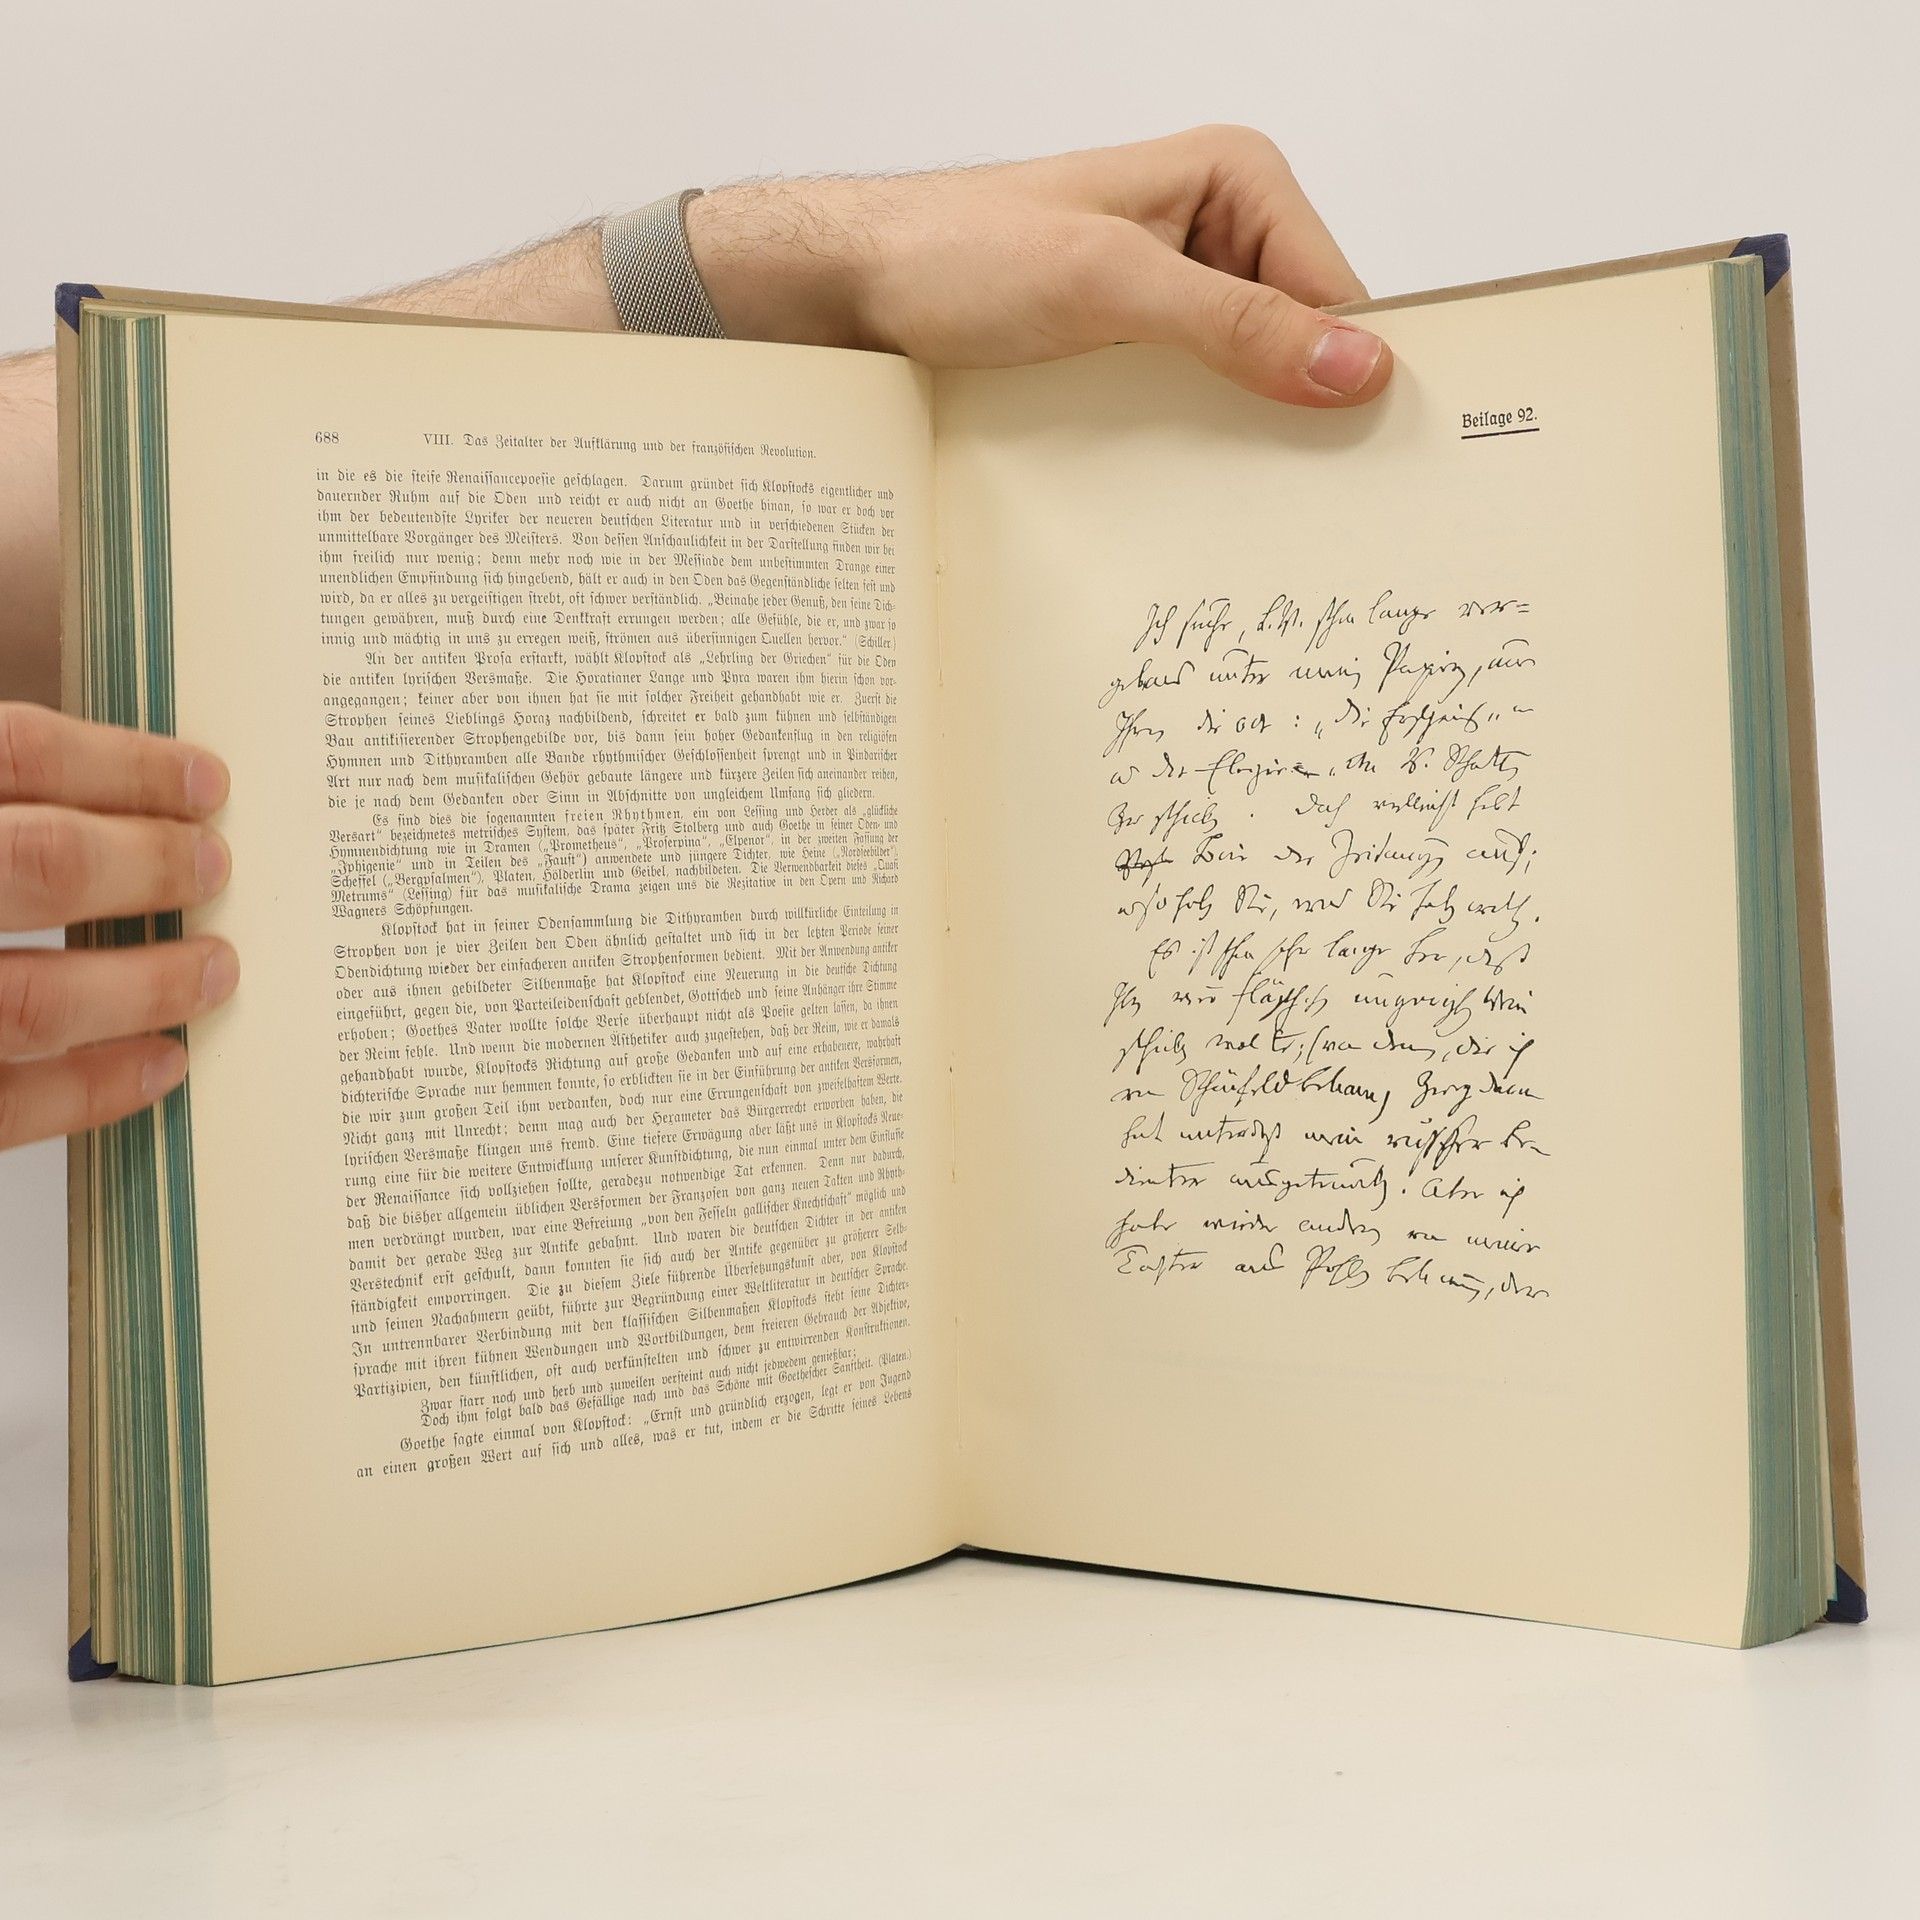 688 VIII. Das Zeitalter der Aufklärung und der französischen Revolution.
in die es die steife Renaissancepoesie geschlagen. Darum gründet sich Klopstocks eigentlicher und
dauernder Ruhm auf die Oden und reicht er auch nicht an Goethe hinan, so war er doch vor
ihm der bedeutendste Lyriker der neueren deutschen Literatur und in verschiedenen Stücken der
unmittelbare Vorgänger des Meisters. Von dessen Anschaulichkeit in der Darstellung finden wir bei
ihm freilich nur wenig; denn mehr noch wie in der Messiade dem unbestimmten Drange einer
unendlichen Empfindung sich hingebend, hält er auch in den Oden das Gegenständliche selten fest und
wird, da er alles zu vergeistigen strebt, oft schwer verständlich. „Beinahe jeder Genuß, den seine Dich-
tungen gewähren, muß durch eine Denkkraft errungen werden; alle Gefühle, die er, und zwar so
innig und mächtig in uns zu erregen weiß, strömen aus übersinnigen Quellen hervor.“ (Schiller.)
An der antiken Prosa erstarkt, wählt Klopstock als „Lehrling der Griechen“ für die Oden
die antiken lyrischen Versmaße. Die Horatianer Lange und Pyra waren ihm hierin schon vor-
angegangen; keiner aber von ihnen hat sie mit solcher Freiheit gehandhabt wie er. Zuerst die
Strophen seines Lieblings Horaz nachbildend, schreitet er bald zum kühnen und selbständigen
Bau antikisierender Strophengebilde vor, bis dann sein hoher Gedankenflug in den religiösen
Hymnen und Dithyramben alle Bande rhythmischer Geschlossenheit sprengt und in Pindarischer
Art nur nach dem musikalischen Gehör gebaute längere und kürzere Zeilen sich aneinander reihen,
die je nach dem Gedanken oder Sinn in Abschnitte von ungleichem Umfang sich gliedern.
Es sind dies die sogenannten freien Rhythmen, ein von Lessing und Herder als „glückliche
Versart“ bezeichnetes metrisches System, das später Fritz Stolberg und auch Goethe in seiner Oden- und
Hymnendichtung wie in Dramen („Prometheus“, „Proserpina“, „Elpenor“, in der zweiten Fassung der
„Iphigenie“ und in Teilen des „Faust“) anwendete und jüngere Dichter, wie Heine („Nordseebilder“),
Scheffel („Bergpsalmen“), Platen, Hölderlin und Geibel, nachbildeten. Die Verwendbarkeit dieses „Quasi
Metrums“ (Lessing) für das musikalische Drama zeigen uns die Rezitative in den Opern und Richard
Wagners Schöpfungen.
Klopstock hat in seiner Odensammlung die Dithyramben durch willkürliche Einteilung in
Strophen von je vier Zeilen den Oden ähnlich gestaltet und sich in der letzten Periode seiner
Odendichtung wieder der einfacheren antiken Strophenformen bedient. Mit der Anwendung antiker
oder aus ihnen gebildeter Silbenmaße hat Klopstock eine Neuerung in die deutsche Dichtung
eingeführt, gegen die, von Parteileidenschaft geblendet, Gottsched und seine Anhänger ihre Stimme
erhoben; Goethes Vater wollte solche Verse überhaupt nicht als Poesie gelten lassen, da ihnen
der Reim fehle. Und wenn die modernen Ästhetiker auch zugestehen, daß der Reim, wie er damals
gehandhabt wurde, Klopstocks Richtung auf große Gedanken und auf eine erhabenere, wahrhaft
dichterische Sprache nur hemmen konnte, so erblickten sie in der Einführung der antiken Versformen,
die wir zum großen Teil ihm verdanken, doch nur eine Errungenschaft von zweifelhaftem Werte.
Nicht ganz mit Unrecht; denn mag auch der Hexameter das Bürgerrecht erworben haben, die
lyrischen Versmaße klingen uns fremd. Eine tiefere Erwägung aber läßt uns in Klopstocks Neue-
rung eine für die weitere Entwicklung unserer Kunstdichtung, die nun einmal unter dem Einflusse
der Renaissance sich vollziehen sollte, geradezu notwendige Tat erkennen. Denn nur dadurch,
daß die bisher allgemein üblichen Versformen der Franzosen von ganz neuen Takten und Rhyth-
men verdrängt wurden, war eine Befreiung „von den Fesseln gallischer Knechtschaft“ möglich und
damit der gerade Weg zur Antike gebahnt. Und waren die deutschen Dichter in der antiken
Verstechnik erst geschult, dann konnten sie sich auch der Antike gegenüber zu größerer Selb-
ständigkeit emporringen. Die zu diesem Ziele führende Übersetzungskunst aber, von Klopstock
und seinen Nachahmern geübt, führte zur Begründung einer Weltliteratur in deutscher Sprache.
In untrennbarer Verbindung mit den klassischen Silbenmaßen Klopstocks steht seine Dichter-
sprache mit ihren kühnen Wendungen und Wortbildungen, dem freieren Gebrauch der Adjektive,
Partizipien, den künstlichen, oft auch verkünstelten und schwer zu entwirrenden Konstruktionen.
Zwar starr noch und herb und zuweilen versteint auch nicht jedwedem genießbar;
Doch ihm folgt bald das Gefällige nach und das Schöne mit Goethescher Sanftheit. (Platen.)
Goethe sagte einmal von Klopstock: „Ernst und gründlich erzogen, legt er von Jugend
an einen großen Wert auf sich und alles, was er tut, indem er die Schritte seines Lebens
Beilage 92.
Ich suche, L. W. schon lange ver-
gebens unter meinen Papieren, um
Ihnen die Ode:
Doch vielleicht hebt
Es ist schon sehr lange her, daß
schicken wollte; (von dem, die ich
von Schönfeld bekam,
hat unterdeß mein russischer Be-
dienter ausgetrunken. Aber ich
habe wieder andern von meiner